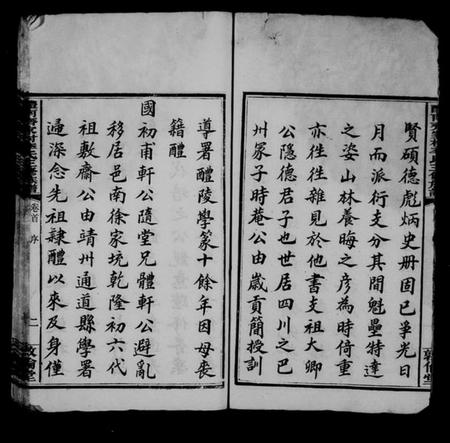 賢碩德彪炳史冊固已爭光日
月而派衍支分其間魁壘特達
之姿山林養晦之彥為時倚重
亦徃徃雜見於他書支祖大卿
公隱德君子也世居四川之巴
州冢子時菴公由歲貢簡授訓
導署醴陵學篆十餘年因母喪
籍醴
國初甫軒公隨堂兄體軒公避亂
移居邑南徐家坑乾隆初六代
祖敷齋公由靖州通道縣學署
遍深念先祖隸醴以來及身僅
卷首
序
二